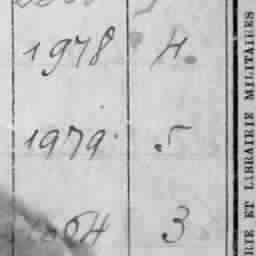 1978 4.
1979. 5
64 3
RIE ET LIBRAIRIE MILITAIRES